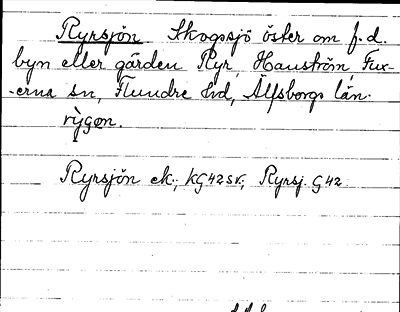 Ryrsjön Skogssjö öster om f.d.
byn eller gården Ryr, Hanström, Fux-
-erna sn, Flundre hd, Älfsborgs län.
rỳgøn.
Ryrsjön ek., KG42SV, Ryrsj. G42